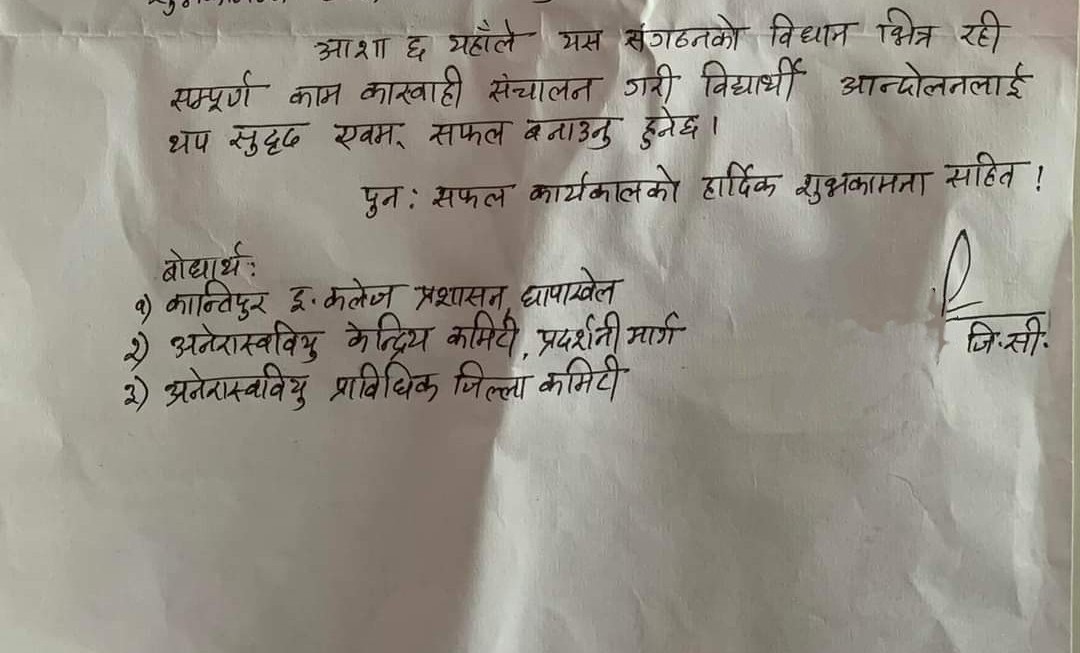 आशा छ यहाँले यस संगठनको विधान भित्र रही
सम्पूर्ण काम कारवाही संचालन गरी विद्यार्थी आन्दोलनलाई
थप सुदृढ एवम् सफल बनाउनु हुनेछ।
पुन: सफल कार्यकालको हार्दिक शुभकामना सहित !
बोधार्थ:
१) कान्तिपुर इ. कलेज प्रशासन, धापाखेल
२) अनेरास्ववियु केन्द्रिय कमिटी, प्रदर्शनी मार्ग
३) अनेरास्ववियु प्राविधिक जिल्ला कमिटी
जि.सी.